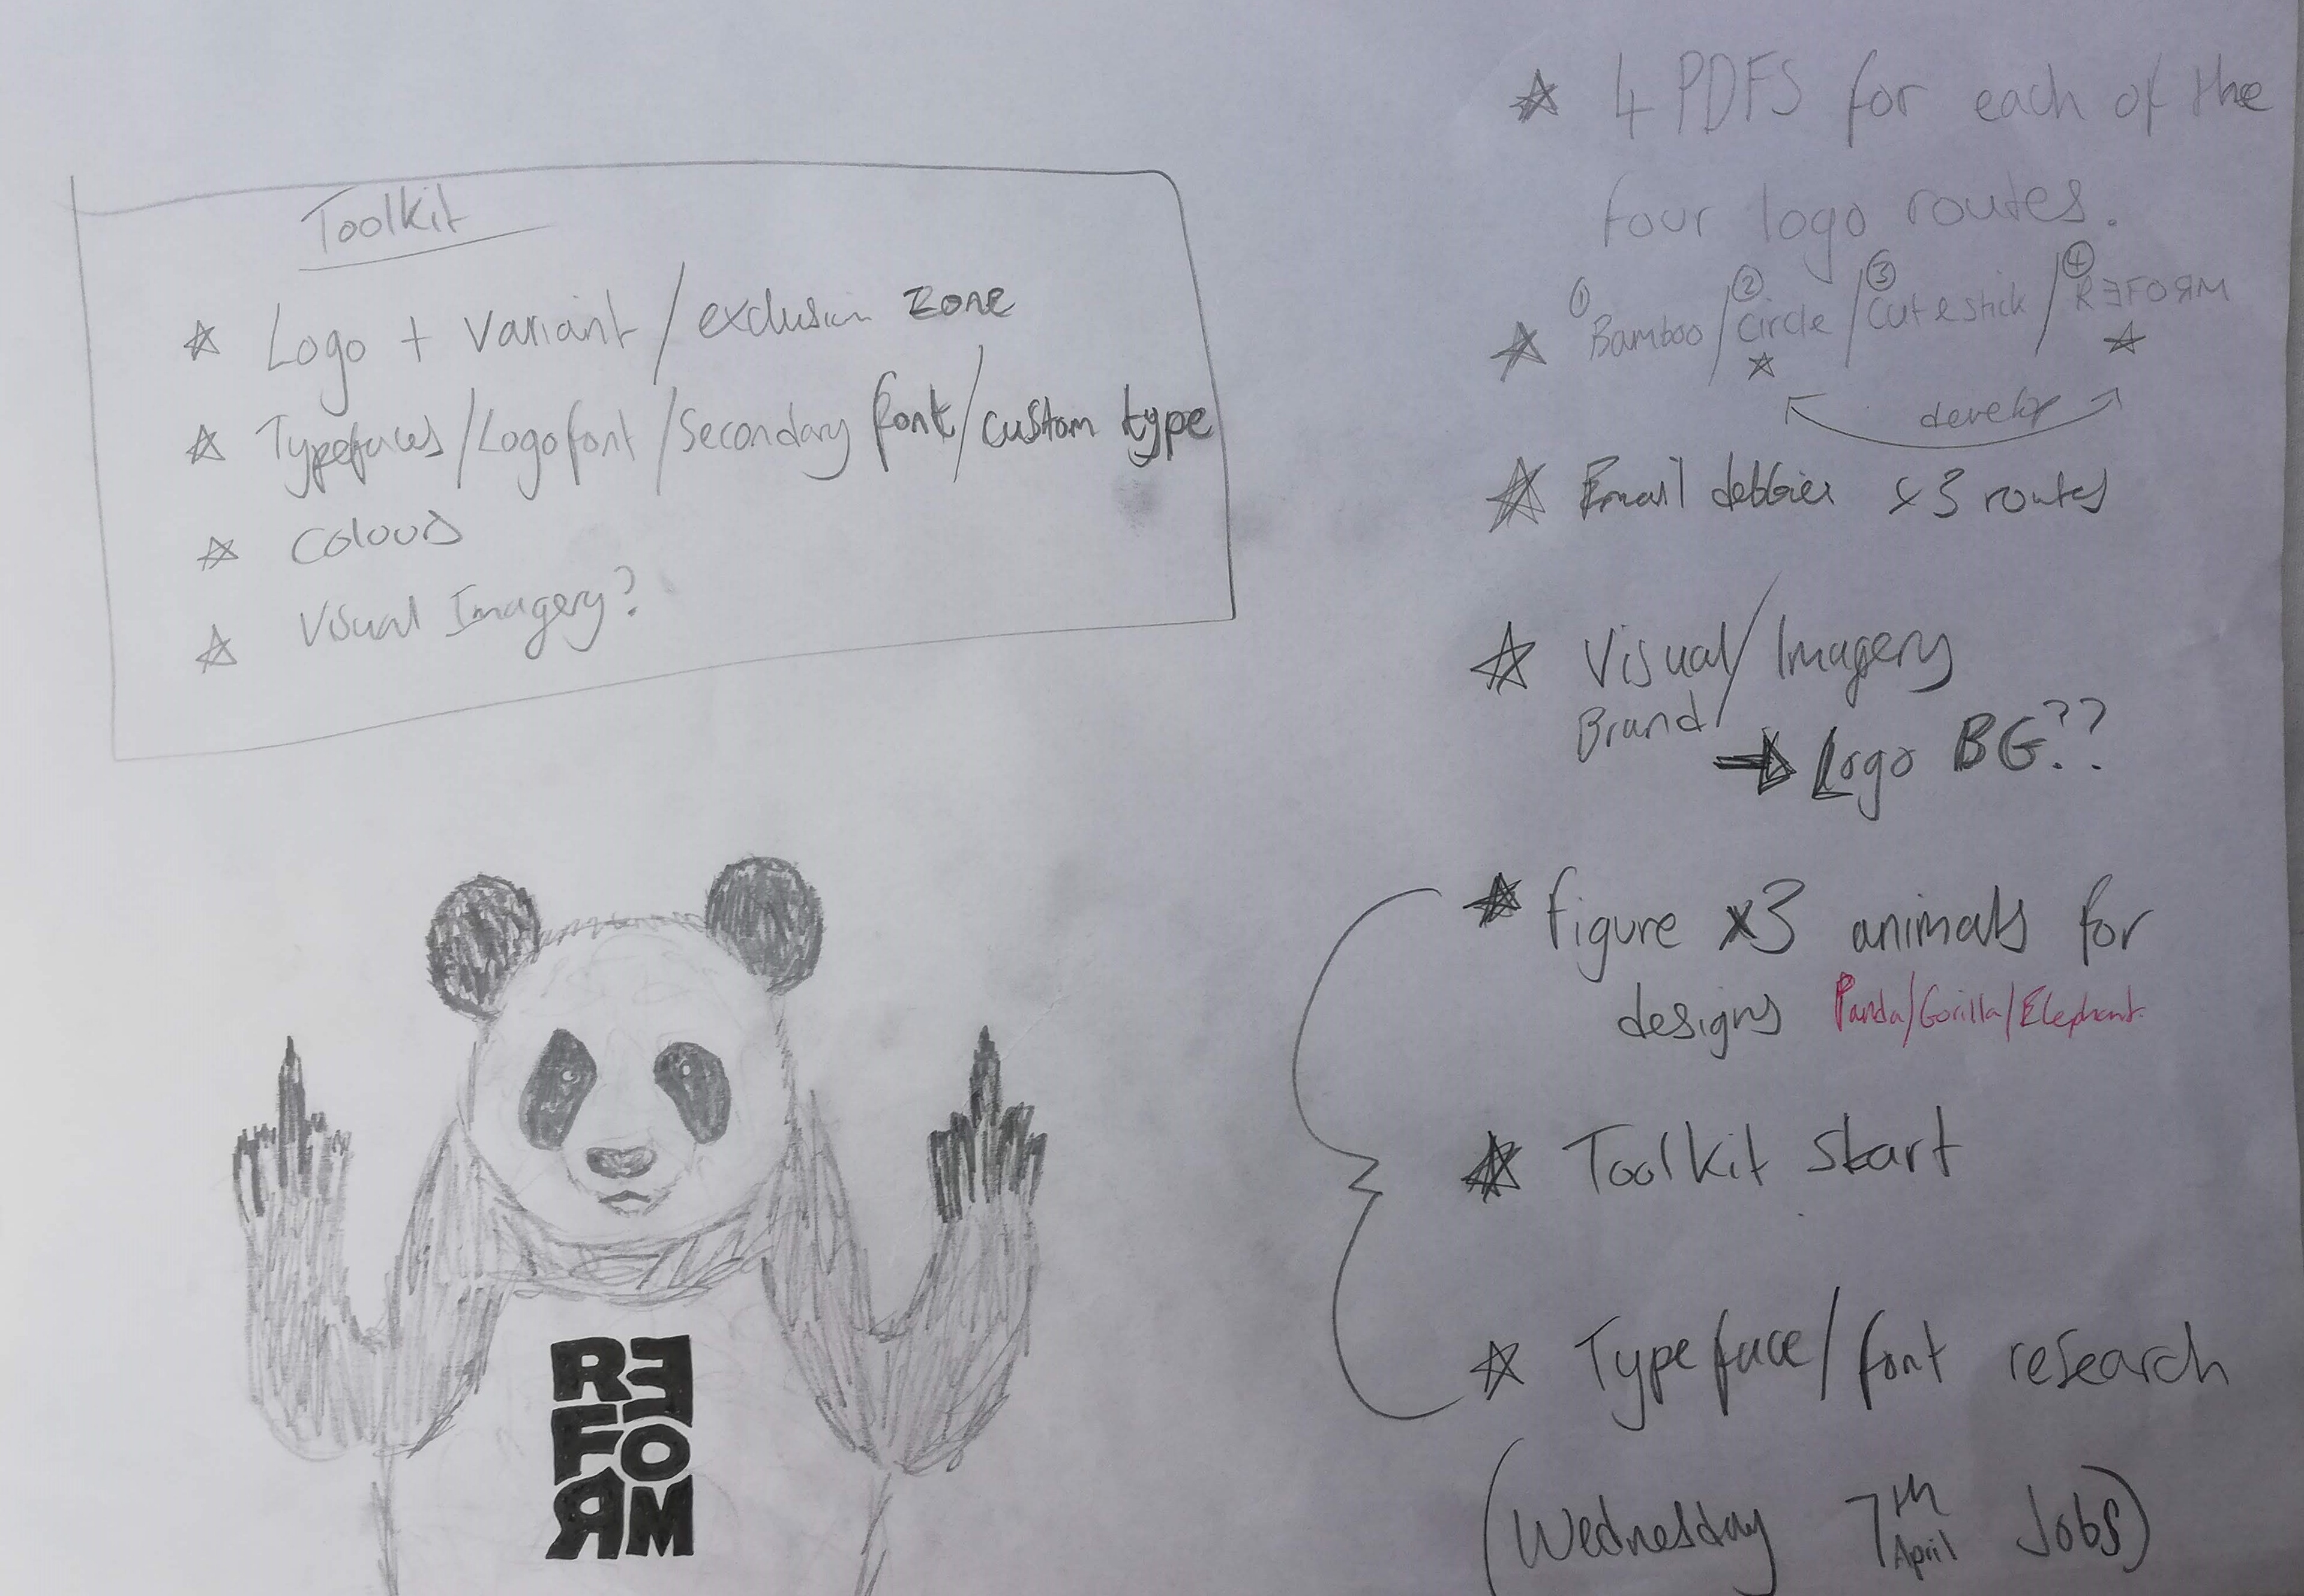 Toolkit
☆ Logo + Variant / exclusion zone
☆ Typefaces/Logofont/Secondary font/custom type
☆ Colours
☆ Visual Imagery?
RƎ
FO
ЯM
☆ 4 PDFS for each of the
four logo routes.
① ② ③ ④
☆ Bamboo / Circle / Cut & stick / RƎFOЯM
☆ ☆
develop
☆ Email debbie x3 routes
☆ Visual / Imagery
Brand
→ Logo BG??
☆ figure x3 animals for
designs Panda/Gorilla/Elephant
☆ Toolkit start
☆ Typeface/font research
(Wednesday 7th April Jobs)